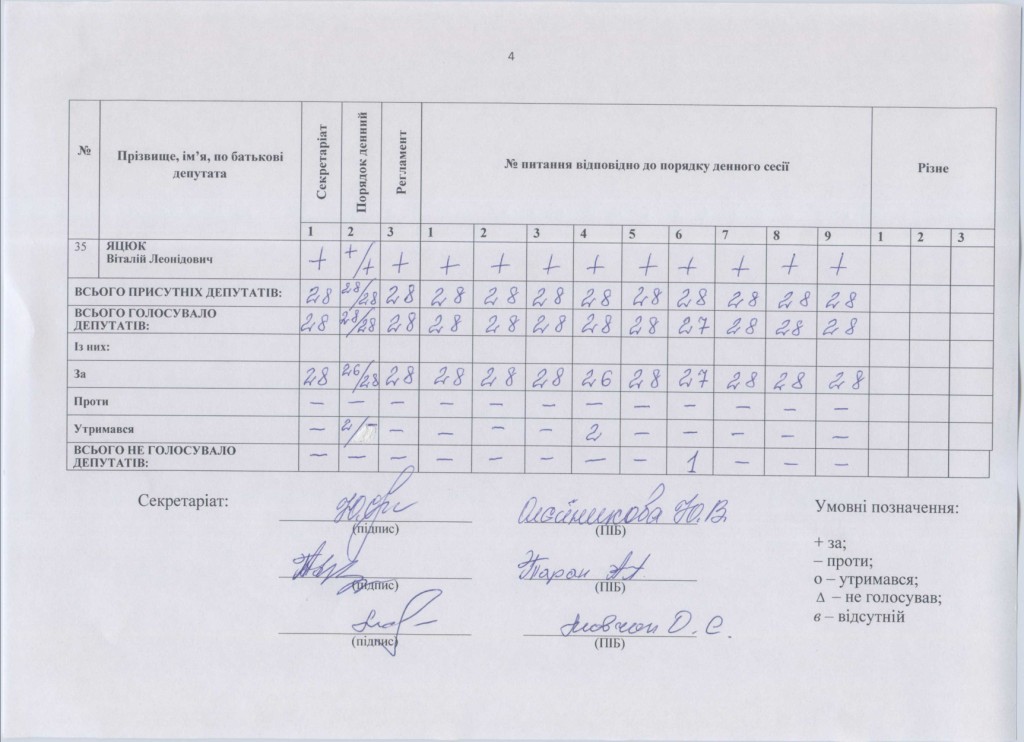 4
№ Прізвище, ім’я, по батькові депутата Секретаріат Порядок денний Регламент № питання відповідно до порядку денного сесії Різне
1 2 3 1 2 3 4 5 6 7 8 9 1 2 3
35 ЯЦЮК Віталій Леонідович + +/+ + + + + + + + + + +
ВСЬОГО ПРИСУТНІХ ДЕПУТАТІВ: 28 28/28 28 28 28 28 28 28 28 28 28 28
ВСЬОГО ГОЛОСУВАЛО ДЕПУТАТІВ: 28 28/28 28 28 28 28 28 28 27 28 28 28
Із них:
За 28 26/28 28 28 28 28 26 28 27 28 28 28
Проти – – – – – – – – – – – –
Утримався – 2/– – – – – 2 – – – – –
ВСЬОГО НЕ ГОЛОСУВАЛО ДЕПУТАТІВ: – – – – – – – – 1 – – –
Секретаріат: Олєйникова Ю.В. Умовні позначення:
(підпис) (ПІБ)
+ за;
– проти;
Таран А.А.
(підпис) (ПІБ)
о – утримався;
Δ – не голосував;
в – відсутній
Мовчан О. С.
(підпис) (ПІБ)